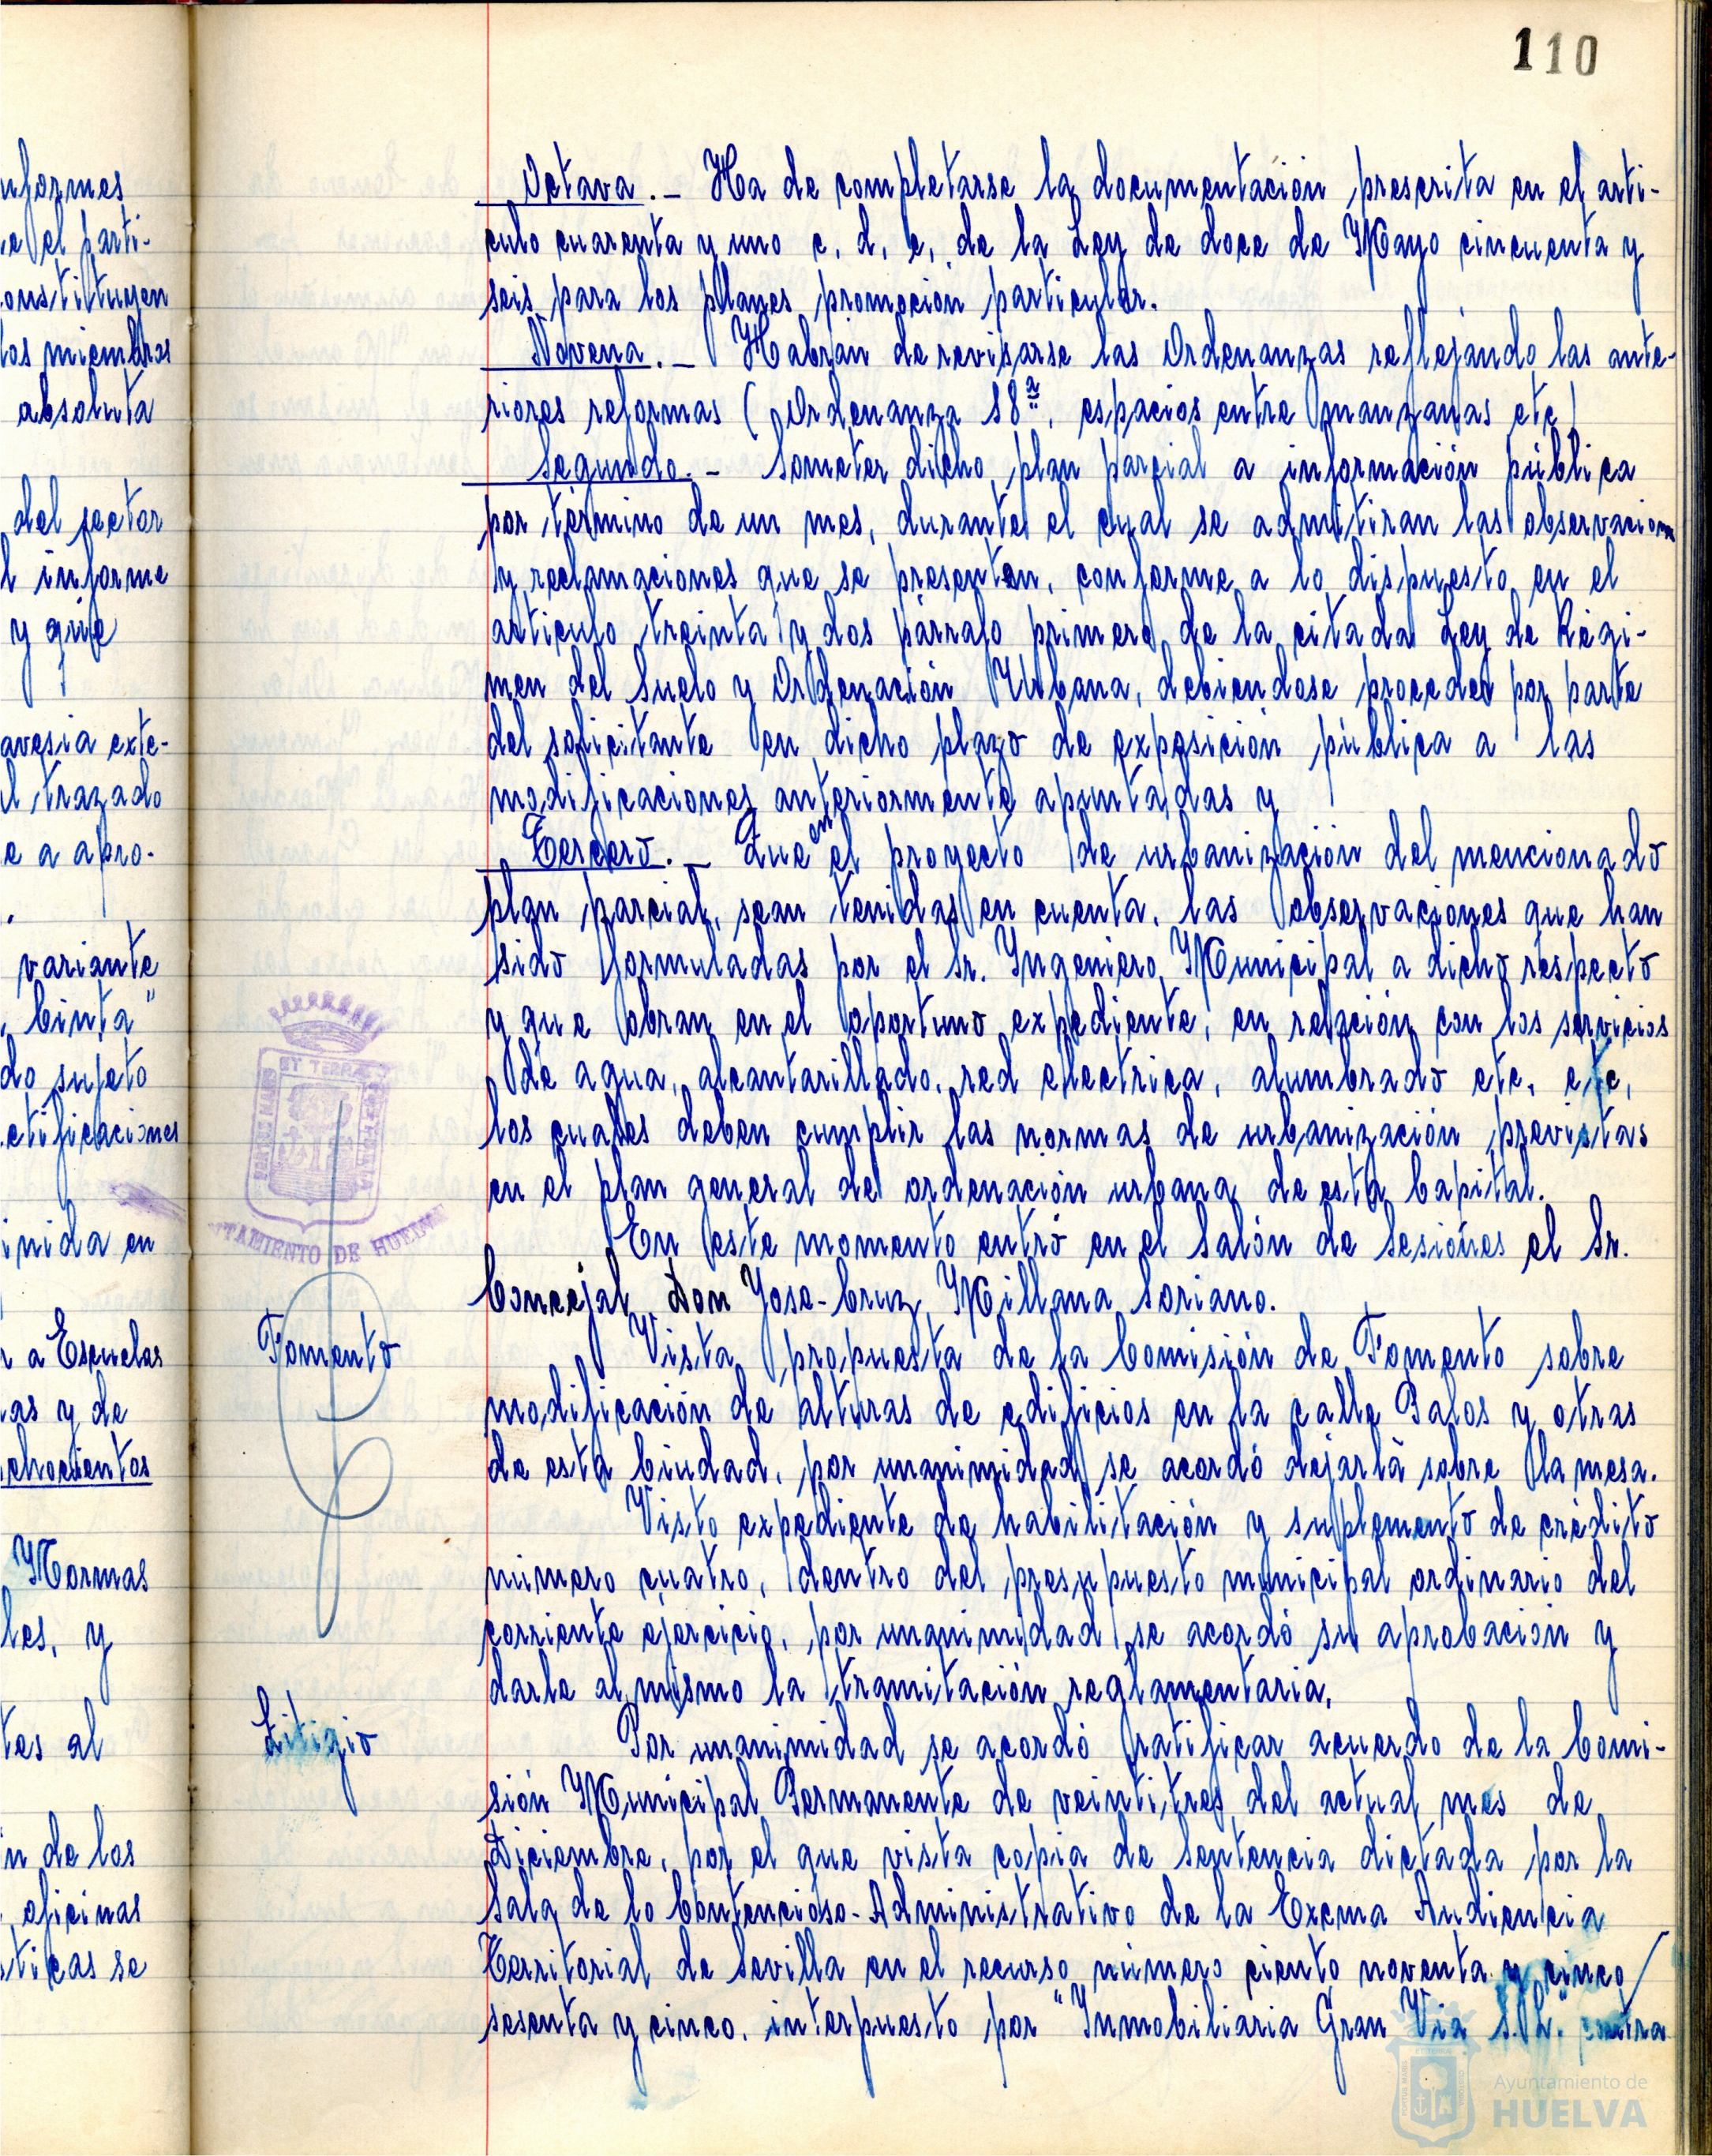 110
nformes
e el parti-
onstituyen
los miembros
absoluta
del sector
l informe
y que
avesia exte-
l trazado
e a apro-
variante
Cinta"
do sujeto
ctificaciones
inida en
r a Escuelas
as y de
ochocientos
Normas
les, y
tes al
n de los
oficinas
sticas se
Octava.- Ha de completarse la documentación prescrita en el arti-
culo cuarenta y uno c, d, e, de la Ley de doce de Mayo cincuenta y
seis para los planes promoción particular.
Novena.- Habrán de revisarse las Ordenanzas reflejando las ante-
riores reformas (Ordenanza 18ª, espacios entre manzanas etc)
Segundo.- Someter dicho plan parcial a información pública
por término de un mes, durante el cual se admitiran las observaciones
y reclamaciones que se presenten, conforme a lo dispuesto en el
articulo treinta y dos párrafo primero de la citada Ley de Regi-
men del Suelo y Ordenación Urbana, debiendose proceder por parte
del solicitante en dicho plazo de exposición pública a las
modificaciones anteriormente apuntadas y
Tercero.- Que en el proyecto de urbanización del mencionado
plan parcial, sean tenidas en cuenta, las observaciones que han
sido formuladas por el Sr. Ingeniero Municipal a dicho respecto
y que obran en el oportuno expediente, en relación con los servicios
de agua, alcantarillado, red electrica, alumbrado etc, etc,
los cuales deben cumplir las normas de urbanización previstas
en el plan general de ordenación urbana de esta Capital.
En este momento entró en el Salón de Sesiones el Sr.
Concejal Don Jose-Cruz Millana Soriano.
Fomento
Vista propuesta de la Comisión de Fomento sobre
modificación de alturas de edificios en la calle Palos y otras
de esta Ciudad, por unanimidad se acordó dejarla sobre la mesa.
Visto expediente de habilitación y suplemento de crédito
número cuatro, dentro del presupuesto municipal ordinario del
corriente ejercicio, por unanimidad se acordó su aprobación y
darle al mismo la tramitación reglamentaria.
Litigio
Por unanimidad se acordó ratificar acuerdo de la Comi-
sión Municipal Permanente de veintitres del actual mes de
Diciembre, por el que vista copia de Sentencia dictada por la
Sala de lo Contencioso-Administrativo de la Excma Audiencia
Territorial de Sevilla en el recurso número ciento noventa y cinco/
sesenta y cinco, interpuesto por "Inmobiliaria Gran Via S.A." contra
ET TERRAE
TAMIENTO DE HUELVA
Ayuntamiento de
HUELVA